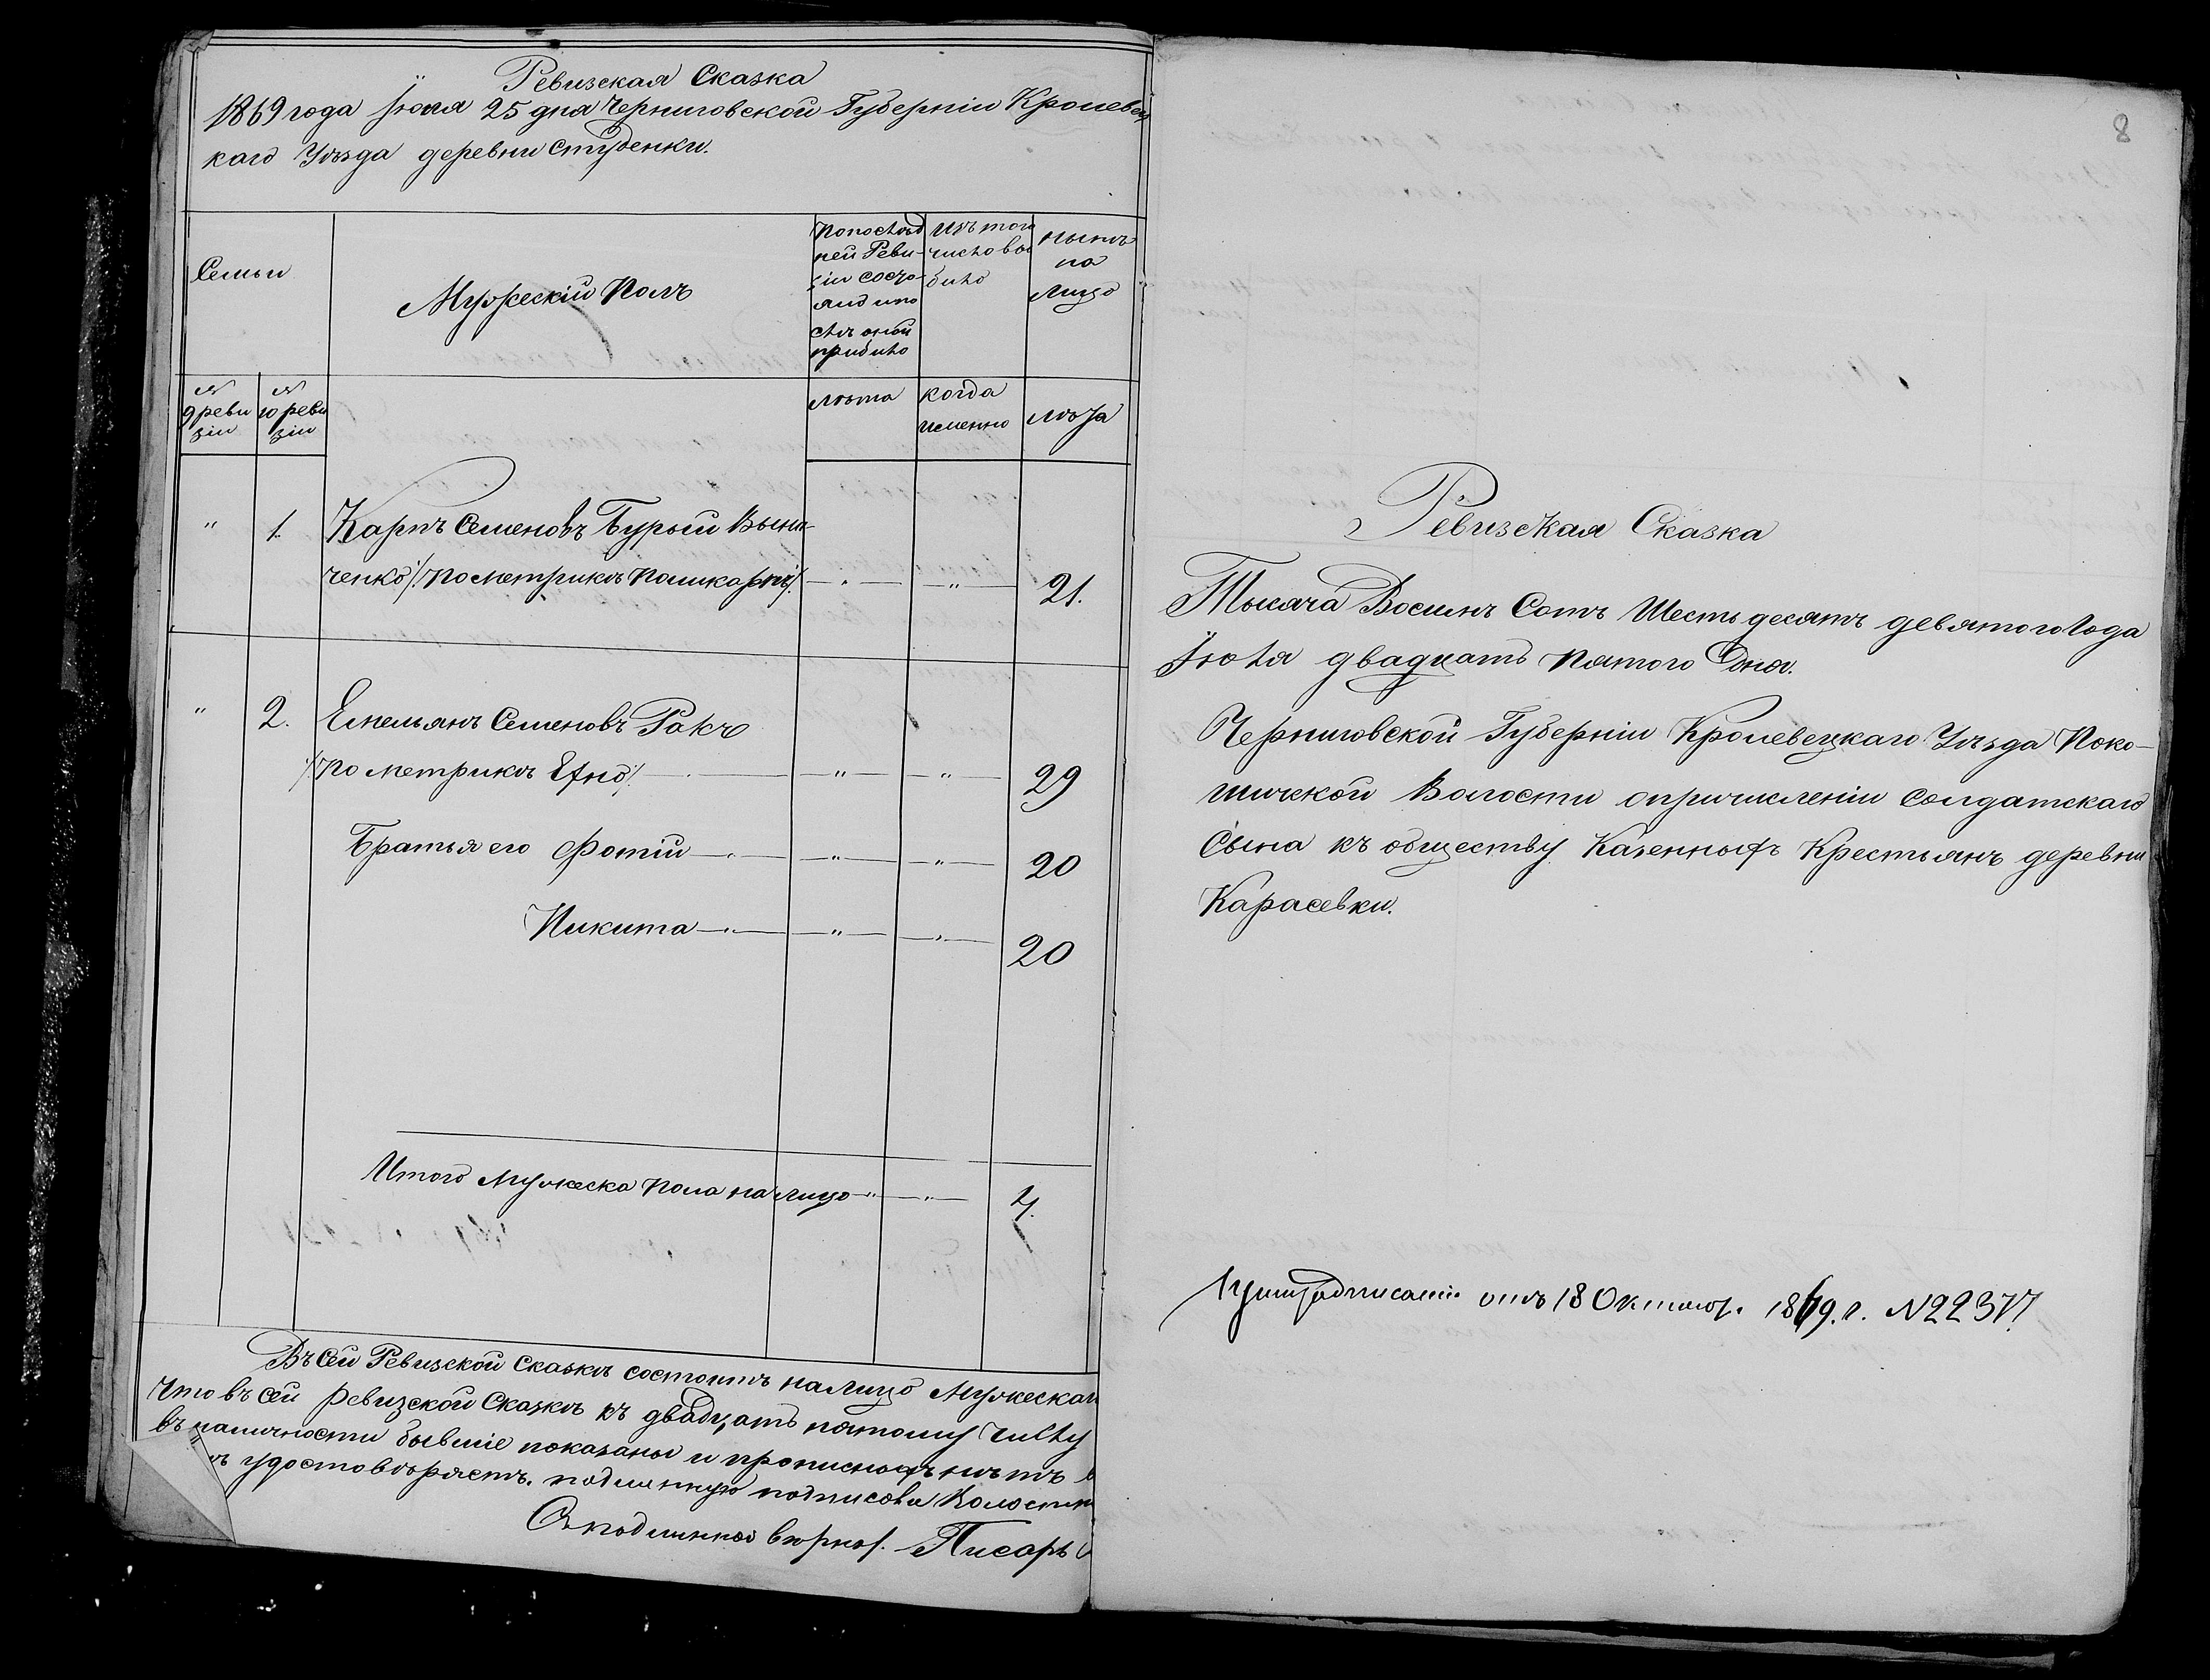 Ревизская Сказка
1869 года Іюля 25 дня Черниговской Губерніи Кролевец
каго Уѣзда деревни Студенки.
Семьи
Мужескій Полъ
По послѣд
ней Реви-
зіи состо-
яло и по
слѣ оной
прибыло
Изъ того
числа вы
было
Нынѣ
на
лицо
№
9 реви
зіи
№
10 реви
зіи
лѣта
когда
именно
лѣта
" 1. Карпъ Семеновъ Бурый Выни-
ченко /: По метрикѣ Поликарпъ :/ — " — — " — 21.
" 2. Емельянъ Семеновъ Ракъ
/: По метрикѣ :/ — " — — " — 29
Братья его Фотій — " — — " — — " — 20
Никита — " — — " — — " — 20
Итого Мужеска Пола на лицо — " — — " — 4.
Въ сей Ревизской Сказкѣ состоитъ на лицо Мужеска
Что въ сей ревизской Сказкѣ къ двадцать пятому числу
въ наличности бывшіе показаны и прописныхъ нѣтъ
удостовѣряетъ. подлинную подписовалъ Волостн
Съ подлинной вѣрно. Писарь
8
Ревизская Сказка
Тысяча Восимъ Сотъ Шестьдесятъ девятого Года
Іюля двадцать Пятого Дня.
Черниговской Губерніи Кролевецкаго Уѣзда Поко-
шичской Волости о причисленіи солдатскаго
Сына къ обществу Казенныхъ Крестьянъ деревни
Карасевки.
отъ 18 Октября 1869. г. №22377